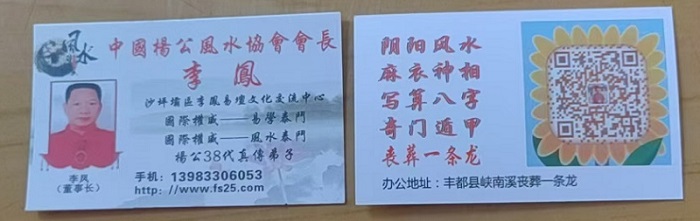 風水
中國楊公風水協會會長
李鳳
沙坪壩區李鳳易壇文化交流中心
國際權威——易學泰鬥
國際權威——風水泰鬥
楊公38代真傳弟子
李凤
（董事长）
手机：13983306053
http://www.fs25.com
阴阳风水
麻衣神相
写算八字
奇门遁甲
丧葬一条龙
办公地址：丰都县峡南溪丧葬一条龙